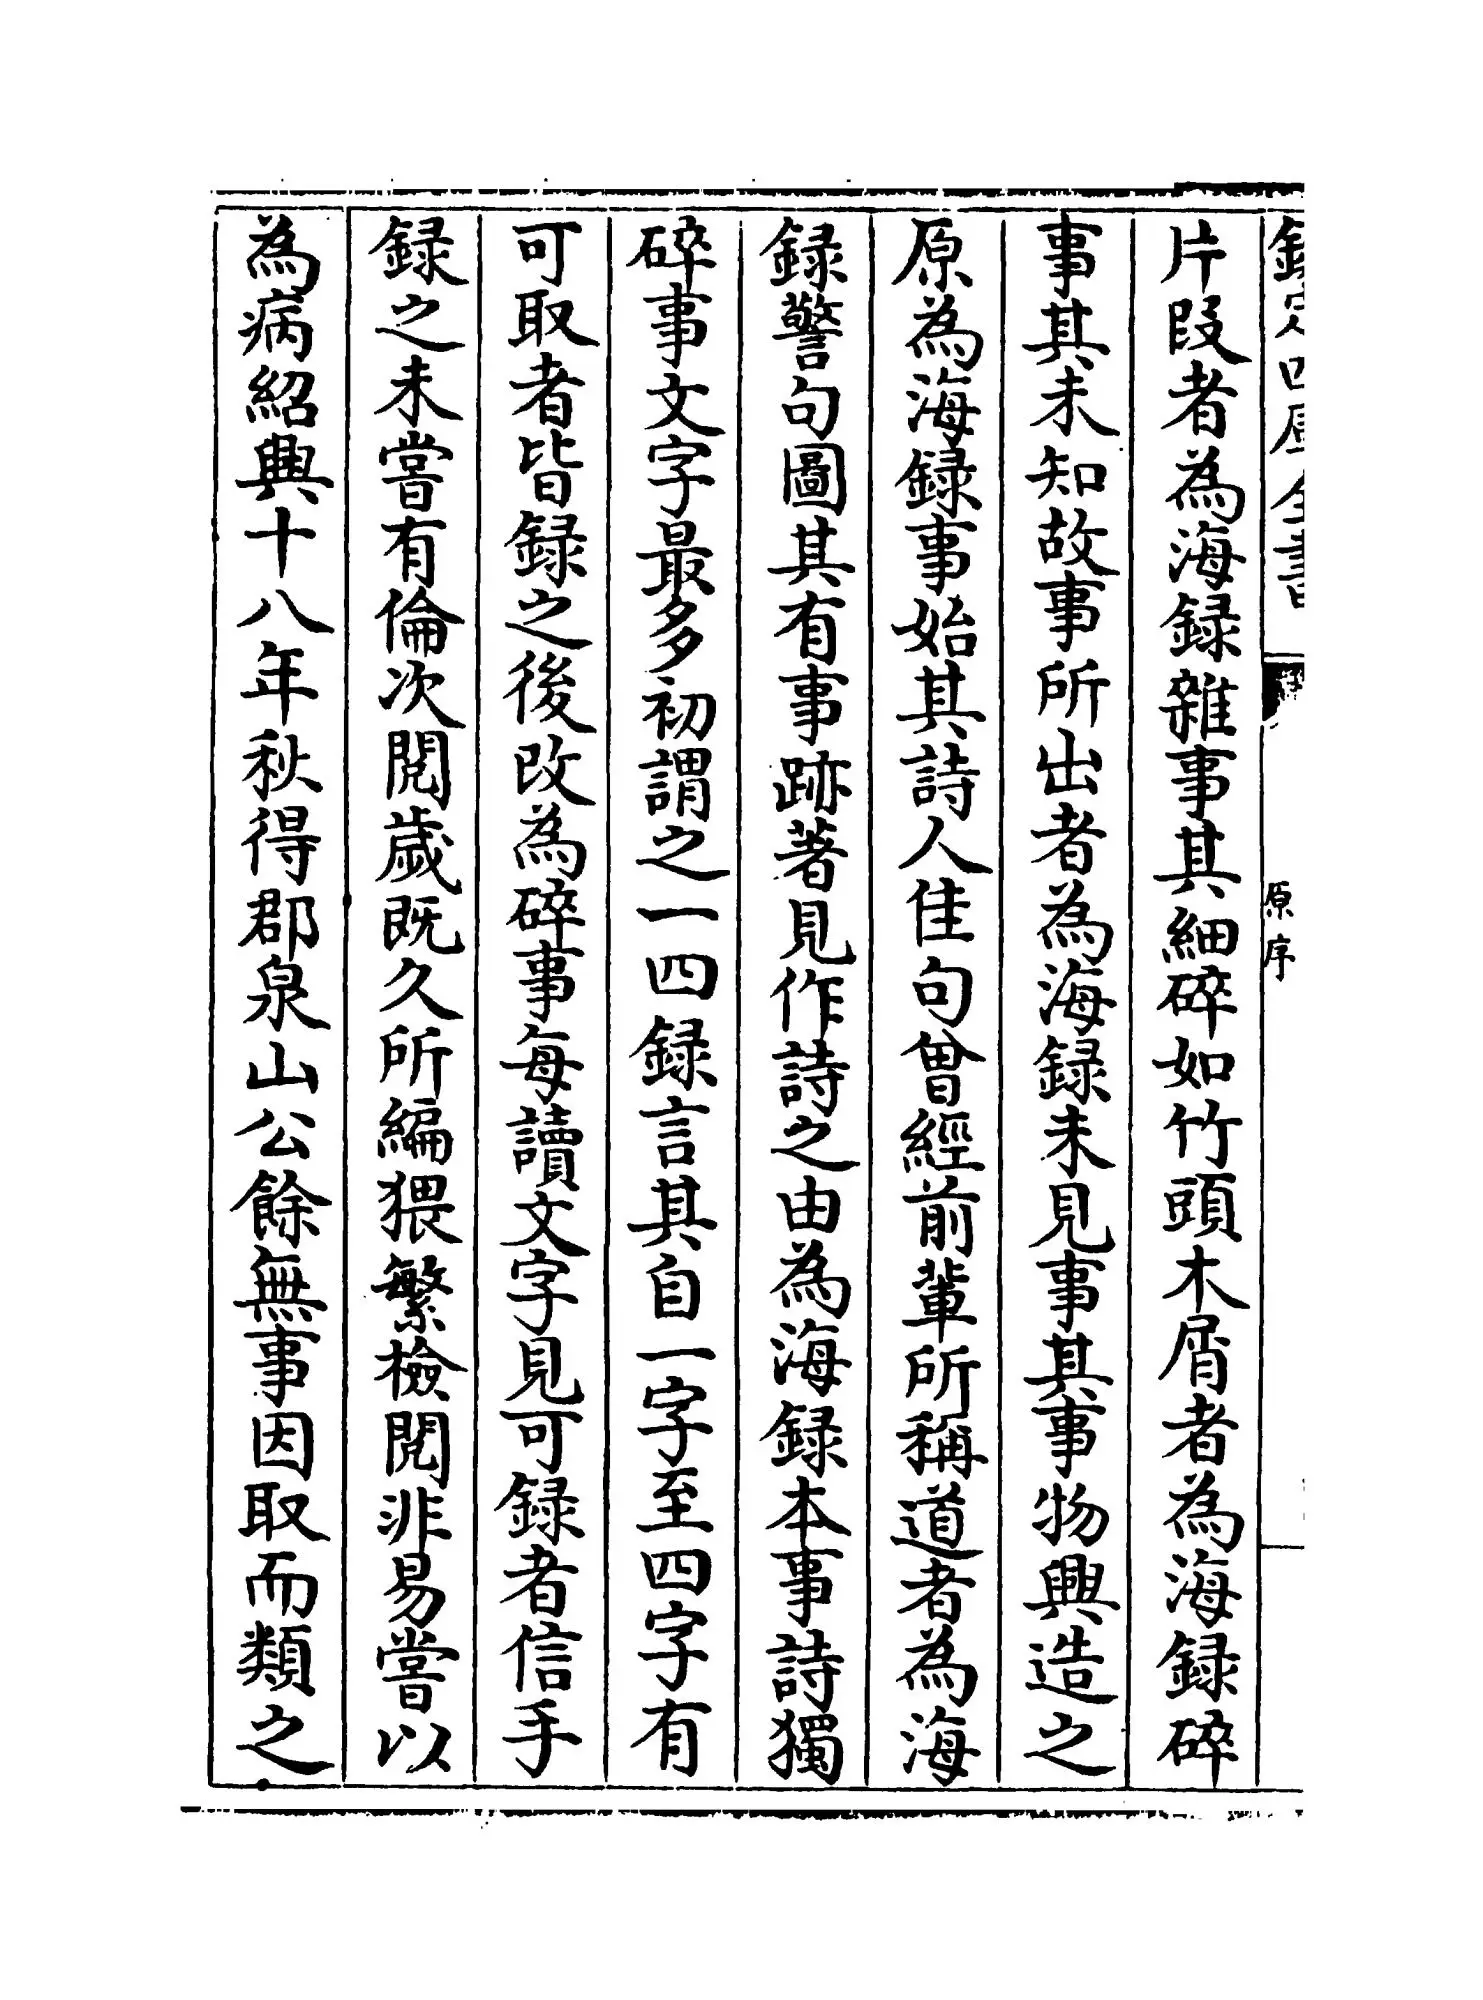 欽定四庫全書
原序
片段者為海録雜事其細碎如竹頭木屑者為海録碎
事其未知故事所出者為海録未見事其事物興造之
原為海録事始其詩人佳句曾經前輩所稱道者為海
録警句圖其有事跡著見作詩之由為海録本事詩獨
碎事文字最多初謂之一四録言其自一字至四字有
可取者皆録之後改為碎事每讀文字見可録者信手
録之未嘗有倫次閱歲既久所編猥繁檢閱非易嘗以
為病紹興十八年秋得郡泉山公餘無事因取而類之